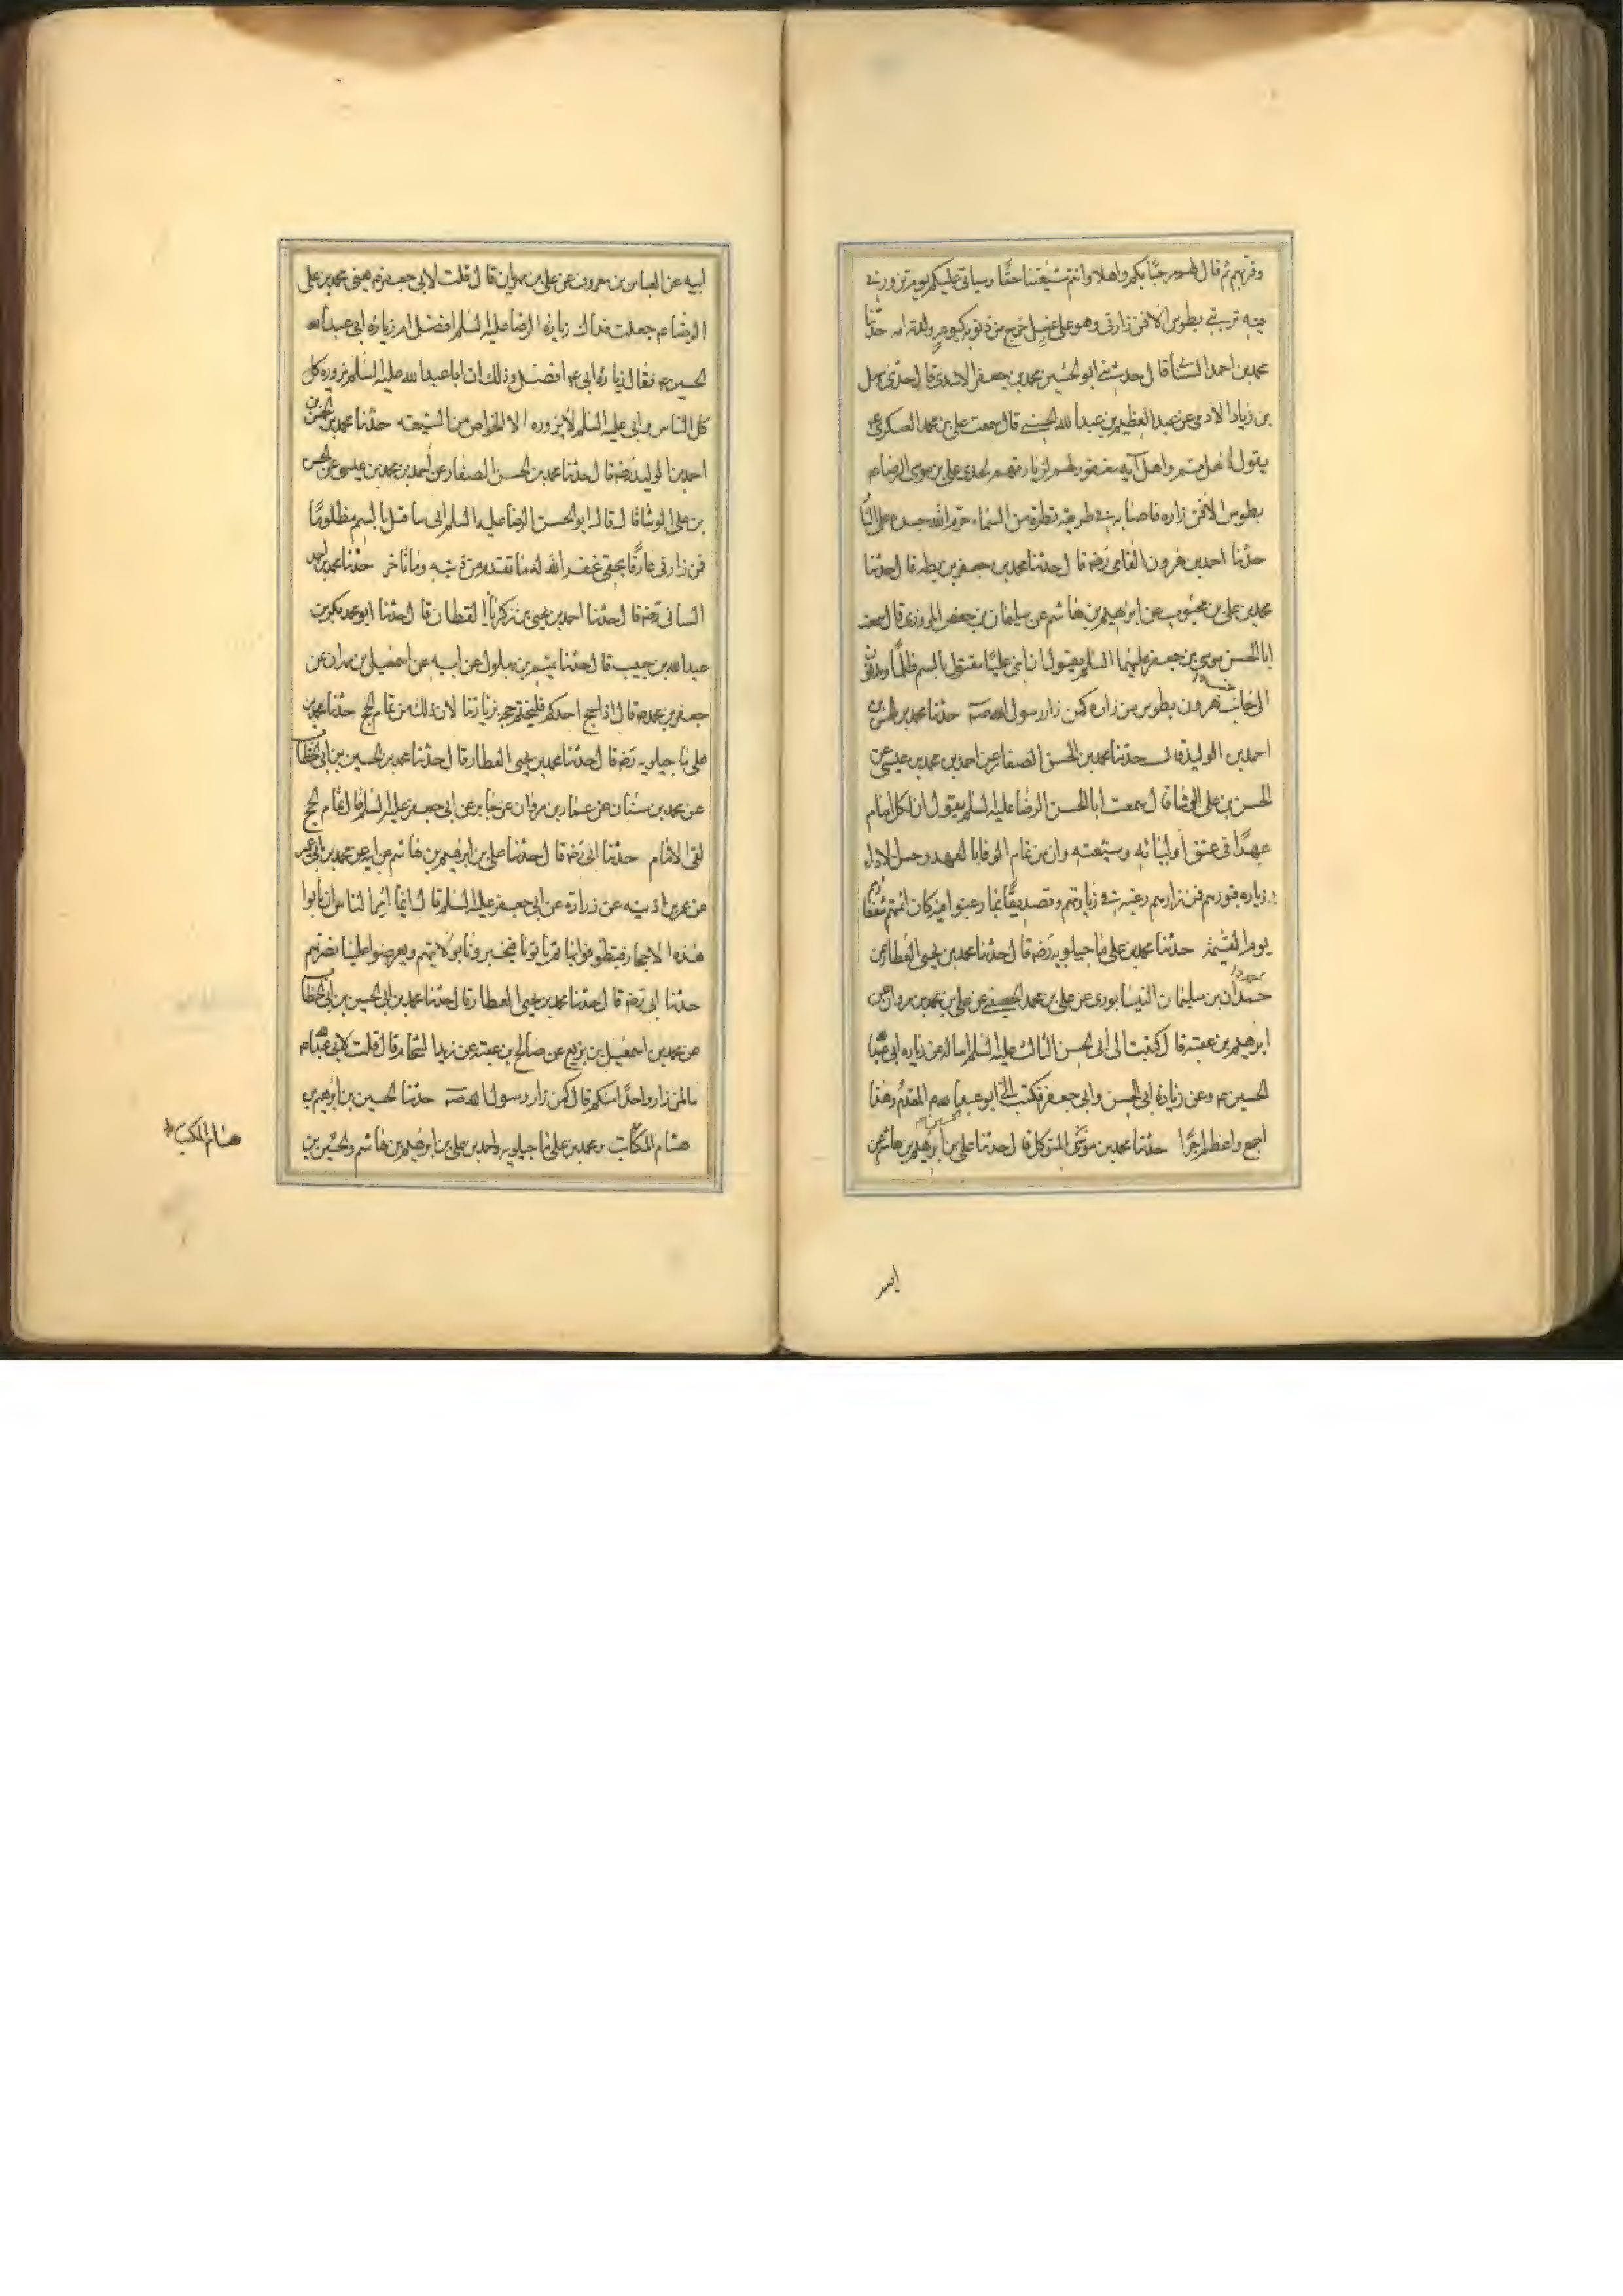 وقربهم ثم قال لهم مرحبا بكم واهلا وانتم شيعتنا حقا وسياتى عليكم يوم تزورونى
فيه تربتى بطوس الا فمن زارنى وهو على غسل خرج من ذنوبه كيوم ولدته امه حدثنا
محمد بن احمد السنانى قال حدثنى ابو الحسين محمد بن جعفر الاسدى قال حدثنى سهل
بن زياد الادمى عن عبد العظيم بن عبد الله الحسنى قال سمعت على بن محمد العسكرى ع
يقول اهل قم واهل آبه مغفور لهم لزيارتهم لجدى على بن موسى الرضا ع
بطوس الا فمن زاره فاصابه فى طريقه قطرة من السماء حرم الله جسده على النار
حدثنا احمد بن هرون الفامى رضه قال حدثنا محمد بن جعفر بن بطه قال حدثنا
محمد بن على بن محبوب عن ابرهيم بن هاشم عن سليمان بن حفص المروزى قال سمعت
ابا الحسن موسى بن جعفر عليهما السلم يقول ان ابنى عليا مقتول بالسم ظلما ومدفون
الى جانب هرون بطوس من زاره كمن زار رسول الله صه حدثنا محمد بن الحسن بن
احمد بن الوليد قال حدثنا محمد بن الحسن الصفار عن احمد بن محمد بن عيسى عن
الحسن بن على الوشا قال سمعت ابا الحسن الرضا عليه السلم يقول ان لكل امام
عهدا فى عنق اوليائه وشيعته وان من تمام الوفا بالعهد وحسن الاداء
زياره قبورهم فمن زارهم رغبه فى زيارتهم وتصديقا بما رغبوا فيه كان ائمتهم شفعاؤهم
يوم القيمة حدثنا محمد بن على ماجيلويه رضه قال حدثنا محمد بن يحيى العطار عن
حمدان بن سليمان النيسابورى عن على بن محمد الحصينى عن على بن محمد بن مروان عن
ابرهيم بن عقبه قال كتبت الى ابى الحسن الثالث عليه السلم اساله عن زياره ابى عبد الله
الحسين ع وعن زيادة ابى الحسن وابى جعفر فكتب الى ابو عبد الله ع المقدم وهذا
اجمع واعظم اجرا حدثنا محمد بن موسى المتوكل قال حدثنا على بن ابرهيم بن هاشم عن
ابيه
ابيه عن العباس بن معروف عن على بن مهزيار قال قلت لابى جعفر ع يعنى محمد بن على
الرضا ع جعلت فداك زيارة الرضا عليه السلم افضل ام زيارة ابى عبد الله
الحسين ع فقال زيارة ابى ع افضل وذلك ان ابا عبد الله عليه السلم يزوره كل
كل الناس وابى عليه السلم لا يزوره الا الخواص من الشيعه حدثنا محمد بن الحسن بن
احمد بن الوليد رضه قال حدثنا محمد بن الحسن الصفار عن احمد بن محمد بن عيسى عن الحسن
بن على الوشا قال قال ابو الحسن الرضا عليه السلم انى ساقتل بالسم مظلوما
فمن زارنى عارفا بحقى غفر الله له ما تقدم من ذنبه وما تاخر حدثنا محمد بن احمد
السنانى رضه قال حدثنا احمد بن يحيى بن زكريا القطان قال حدثنا ابو محمد بكر بن
عبد الله بن حبيب قال حدثنا تميم بن بهلول عن ابيه عن اسمعيل بن مهران عن
جعفر بن محمد ع قال اذا حج احدكم فليختم حجه بزيارتنا لان ذلك من تمام الحج حدثنا محمد بن
على ماجيلويه رضه قال حدثنا محمد بن يحيى العطار قال حدثنا محمد بن الحسين بن ابى الخطاب
عن محمد بن سنان عن عمار بن مروان عن جابر عن ابى جعفر عليه السلم قال تمام الحج
لقى الامام حدثنا ابى رضه قال حدثنا على بن ابرهيم بن هاشم عن ابيه عن محمد بن ابى عمير
عن عمر بن اذينه عن زرارة عن ابى جعفر عليه السلم قال انما امر الناس ان ياتوا
هذه الاحجار فيطوفوا بها ثم ياتونا فيخبرونا بولايتهم ويعرضوا علينا نصرتهم
حدثنا ابى رضه قال حدثنا محمد بن يحيى العطار قال حدثنا محمد بن ابى الحسين بن ابى الخطاب
عن محمد بن اسمعيل بن بزيع عن صالح بن عقبه عن زيد الشحام قال قلت لابى عبد الله ع
ما لمن زار واحدا منكم قال كمن زار رسول الله صه حدثنا الحسين بن ابرهيم بن
هشام المكاتب ومحمد بن على ماجيلويه واحمد بن على بن ابرهيم بن هاشم والحسين بن
هشام المكتب